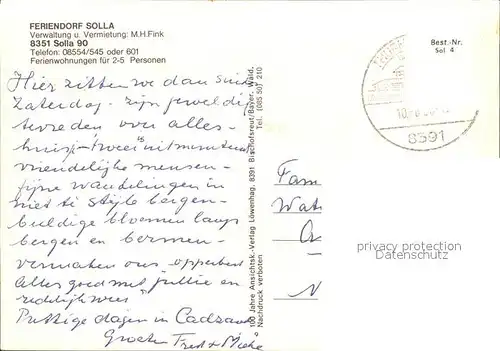 FERIENDORF SOLLA
Verwaltung u. Vermietung: M.H.Fink
8351 Solla 90
Telefon: 08554/545 oder 601
Ferienwohnungen für 2-5 Personen
Best.-Nr.
Sol 4
8391
Hier zitten we dan sinds
Zaterdag. zijn
tevreden over alles -
huisje + weer
vriendelijke mensen -
fijne wandelingen in
niet te stijle bergen -
bloemen langs
bergen en bermen -
vermaken ons opperbest
Alles goed met jullie en
redelijk weer?
Prettige dagen in Cadzand
Groeten Fred +
100 Jahre Ansichtsk.-Verlag Löwenhag, 8391 Bischofsreut/Bayer. Wald,
Tel. (085 50) 210
Nachdruck verboten
Fam
Wat
privacy protection
Datenschutz